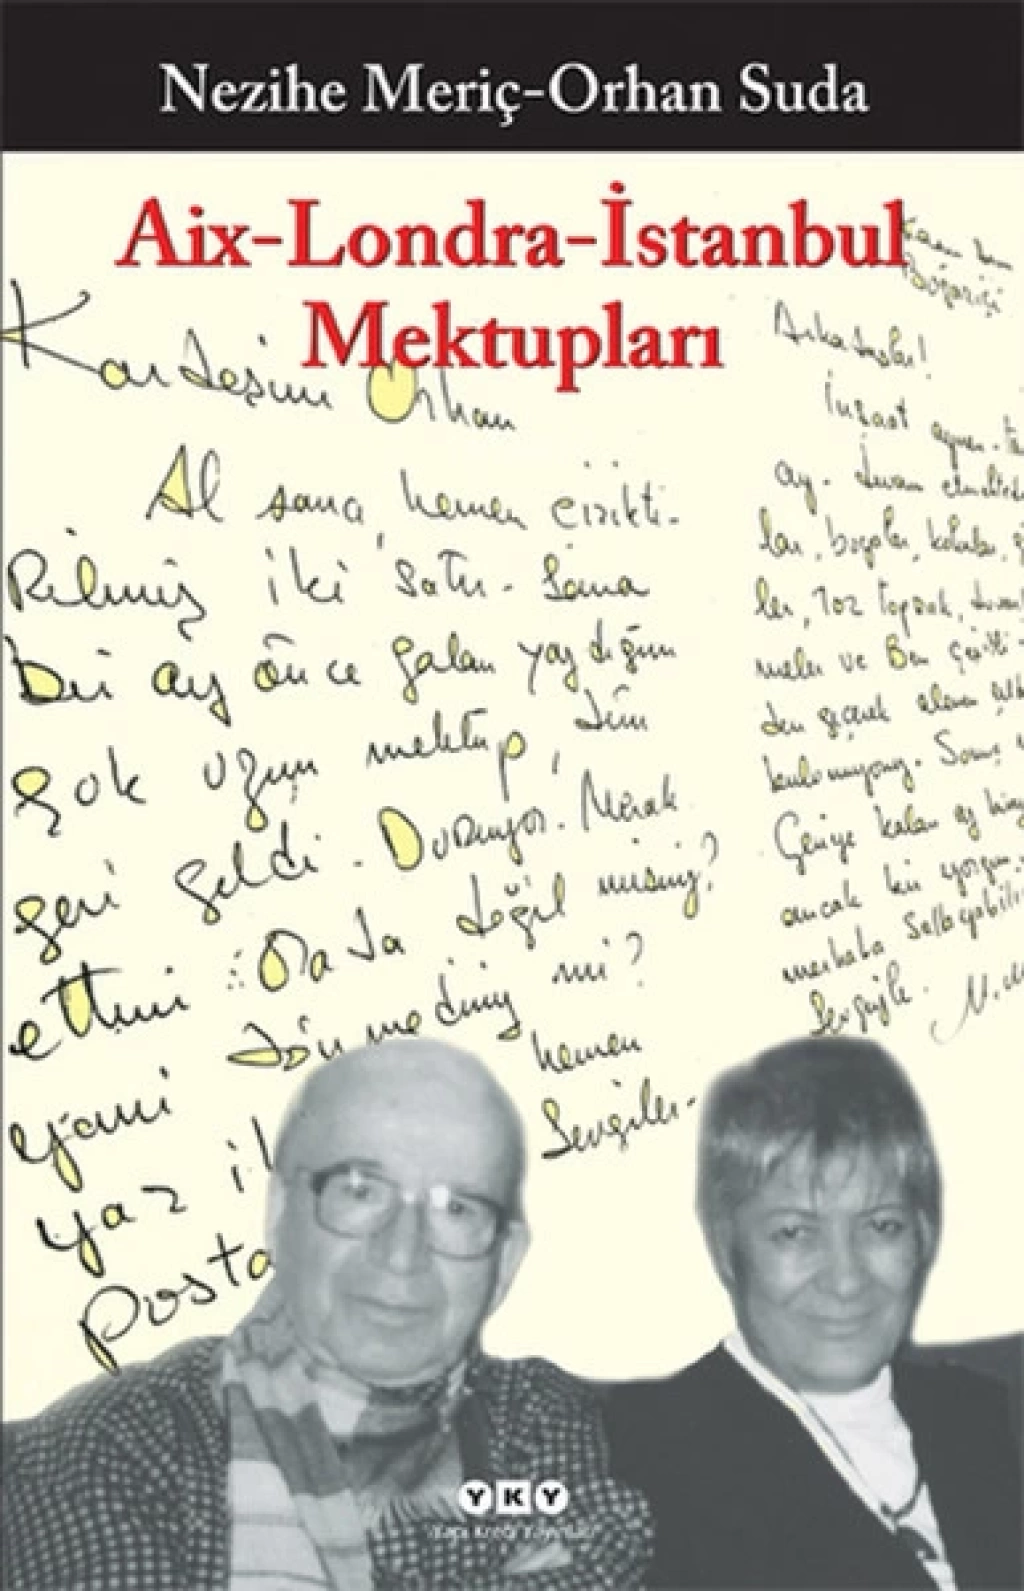 Nezihe Meriç-Orhan Suda
Aix-Londra-İstanbul
Mektupları
Kardeşim Orhan
Al sana, hemen çizikti-
Rilmiş iki satır. Sana
bir ay önce falan yazdığım
çok uzun mektup, dün
geri geldi. Duruyor. Merak
ettim. Orada değil misiniz?
yani dönmediniz mi?
yaz hemen
posta Sevgiler.
Boğaziçi
Arkadaşlar!
İnşaat aynen
ay. devam
lar, boyalar,
ler, toz toprak,
meler ve Ben
den geçerek
Geriye kalan
ancak bir yorgun
merhaba
Sevgiyle.
YKY
Yapı Kredi Yayınları